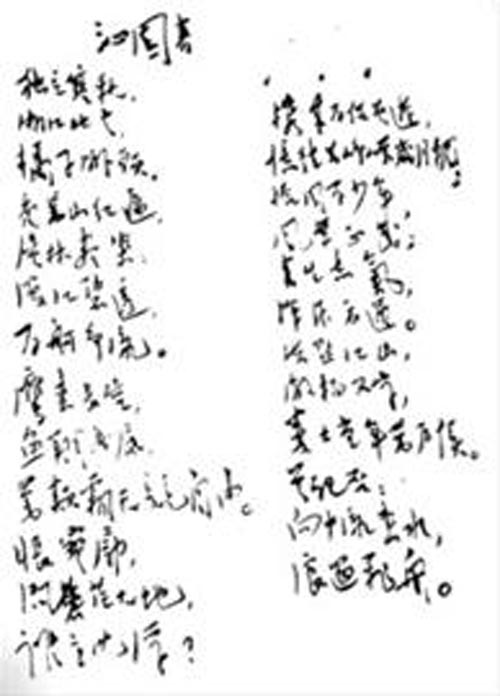 沁园春
独立寒秋,
湘江北去,
橘子洲头。
看万山红遍,
层林尽染,
漫江碧透,
百舸争流。
鹰击长空,
鱼翔浅底,
万类霜天竞自由。
怅寥廓,
问苍茫大地,
谁主沉浮?
携来百侣曾游,
忆往昔峥嵘岁月稠;
恰同学少年,
风华正茂;
书生意气,
挥斥方遒。
指点江山,
激扬文字,
粪土当年万户侯。
曾记否:
向中流击水,
浪遏飞舟。